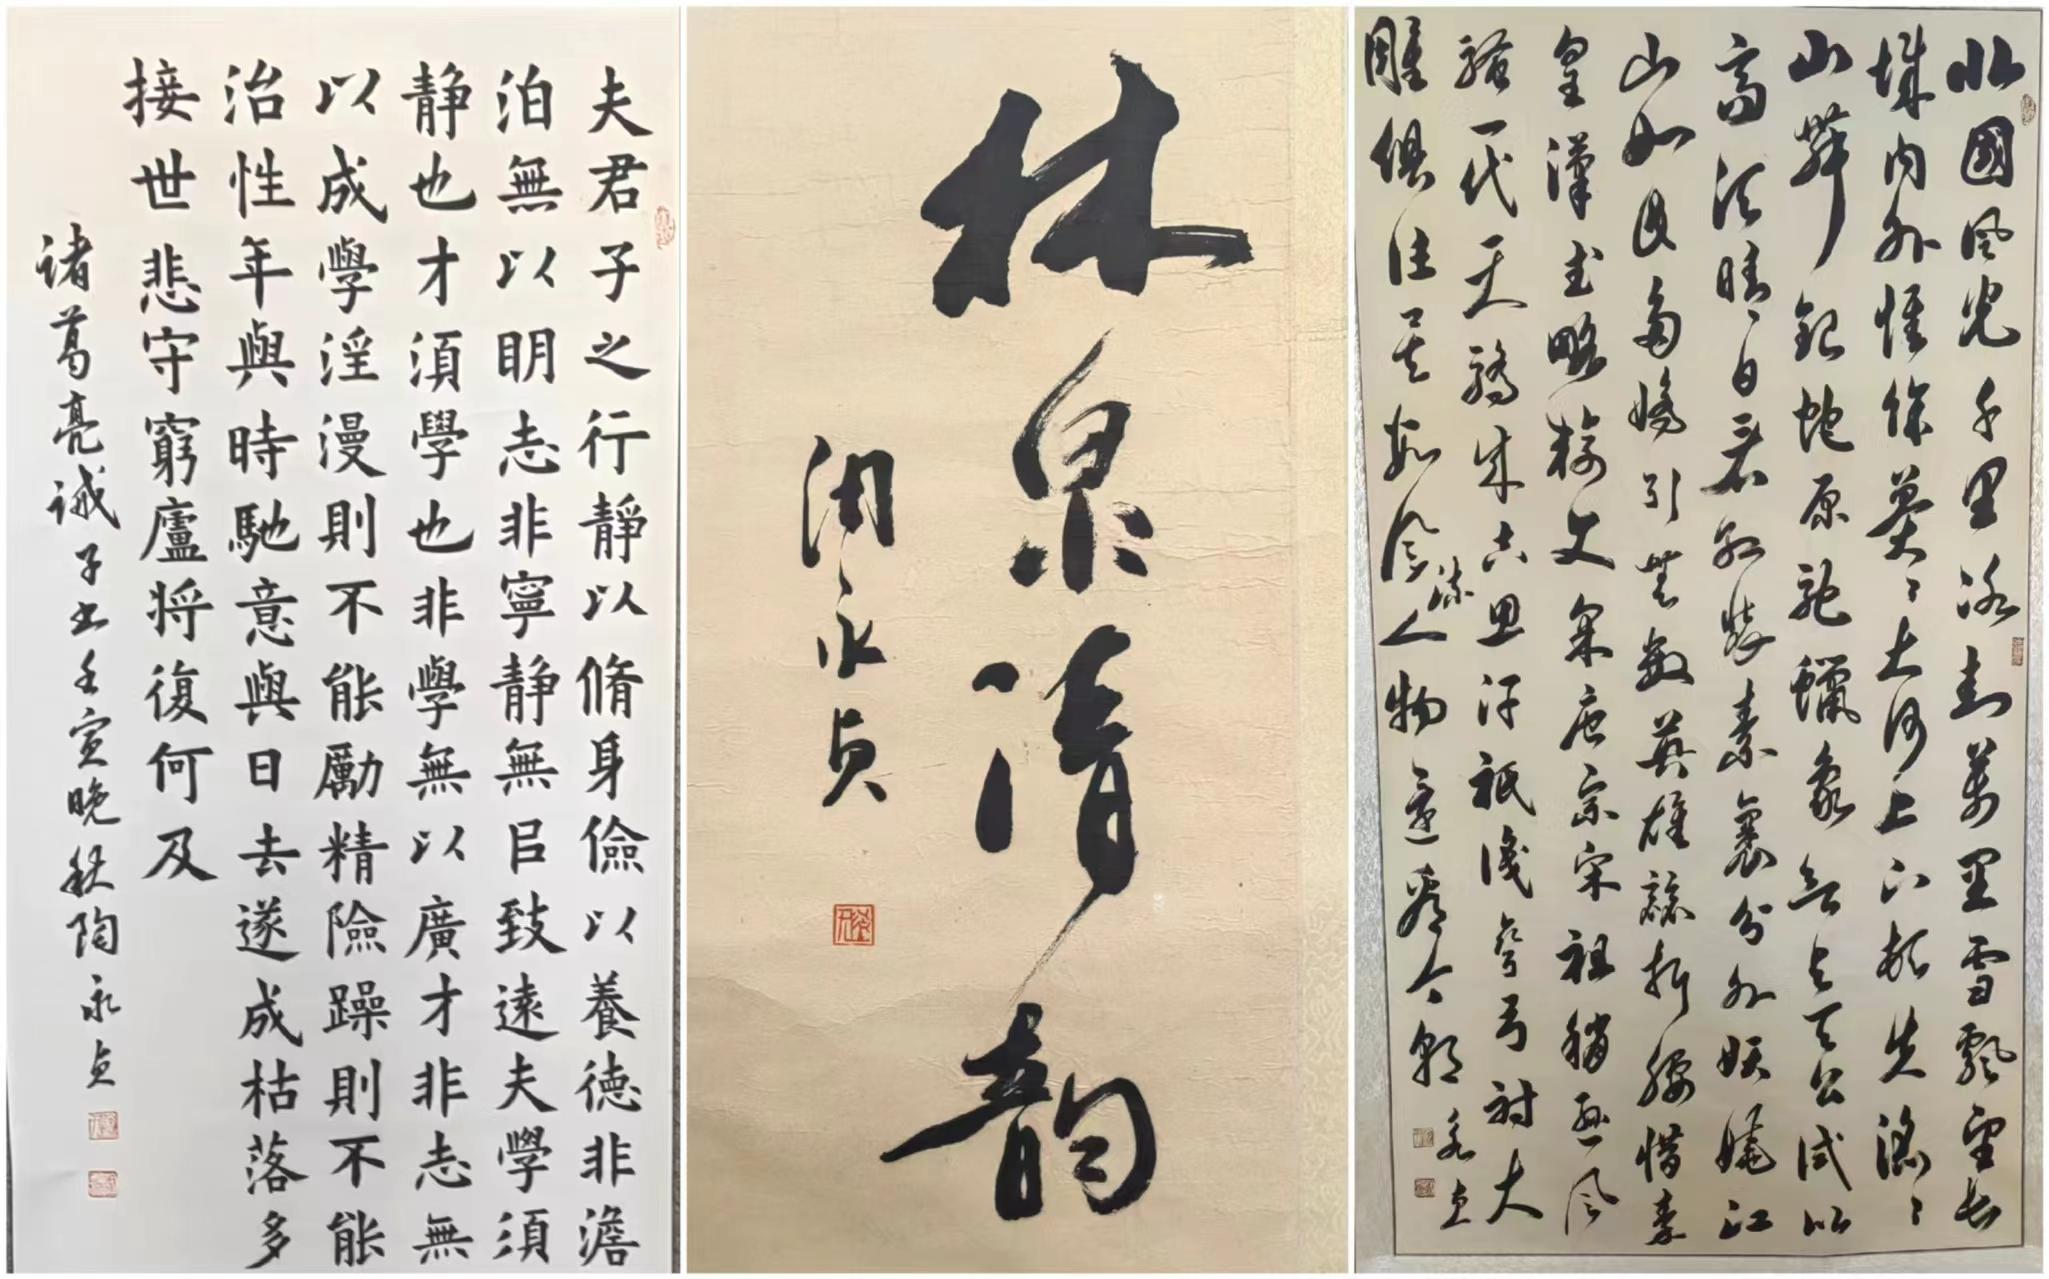 夫君子之行靜以脩身儉以養德非澹
泊無以明志非寧静無㠯致遠夫學須
静也才須學也非學無以廣才非志無
以成學淫漫則不能勵精險躁則不能
治性年與時馳意與日去遂成枯落多
接世悲守窮廬将復何及
诸葛亮诫子书壬寅晚秋陶永贞
林泉清韵
陶永贞
北國風光千里冰封萬里雪飄望长
城内外惟餘莽々大河上下頓失滔々
山舞銀蛇原馳蠟象欲與天公試比
高须晴日看紅裝素裹分外妖嬈江
山如此多嬌引無數英雄競折腰惜秦
皇漢武略輸文采唐宗宋祖稍遜風
骚一代天驕成吉思汗祇識彎弓射大
雕俱往矣數風流人物還看今朝
永贞